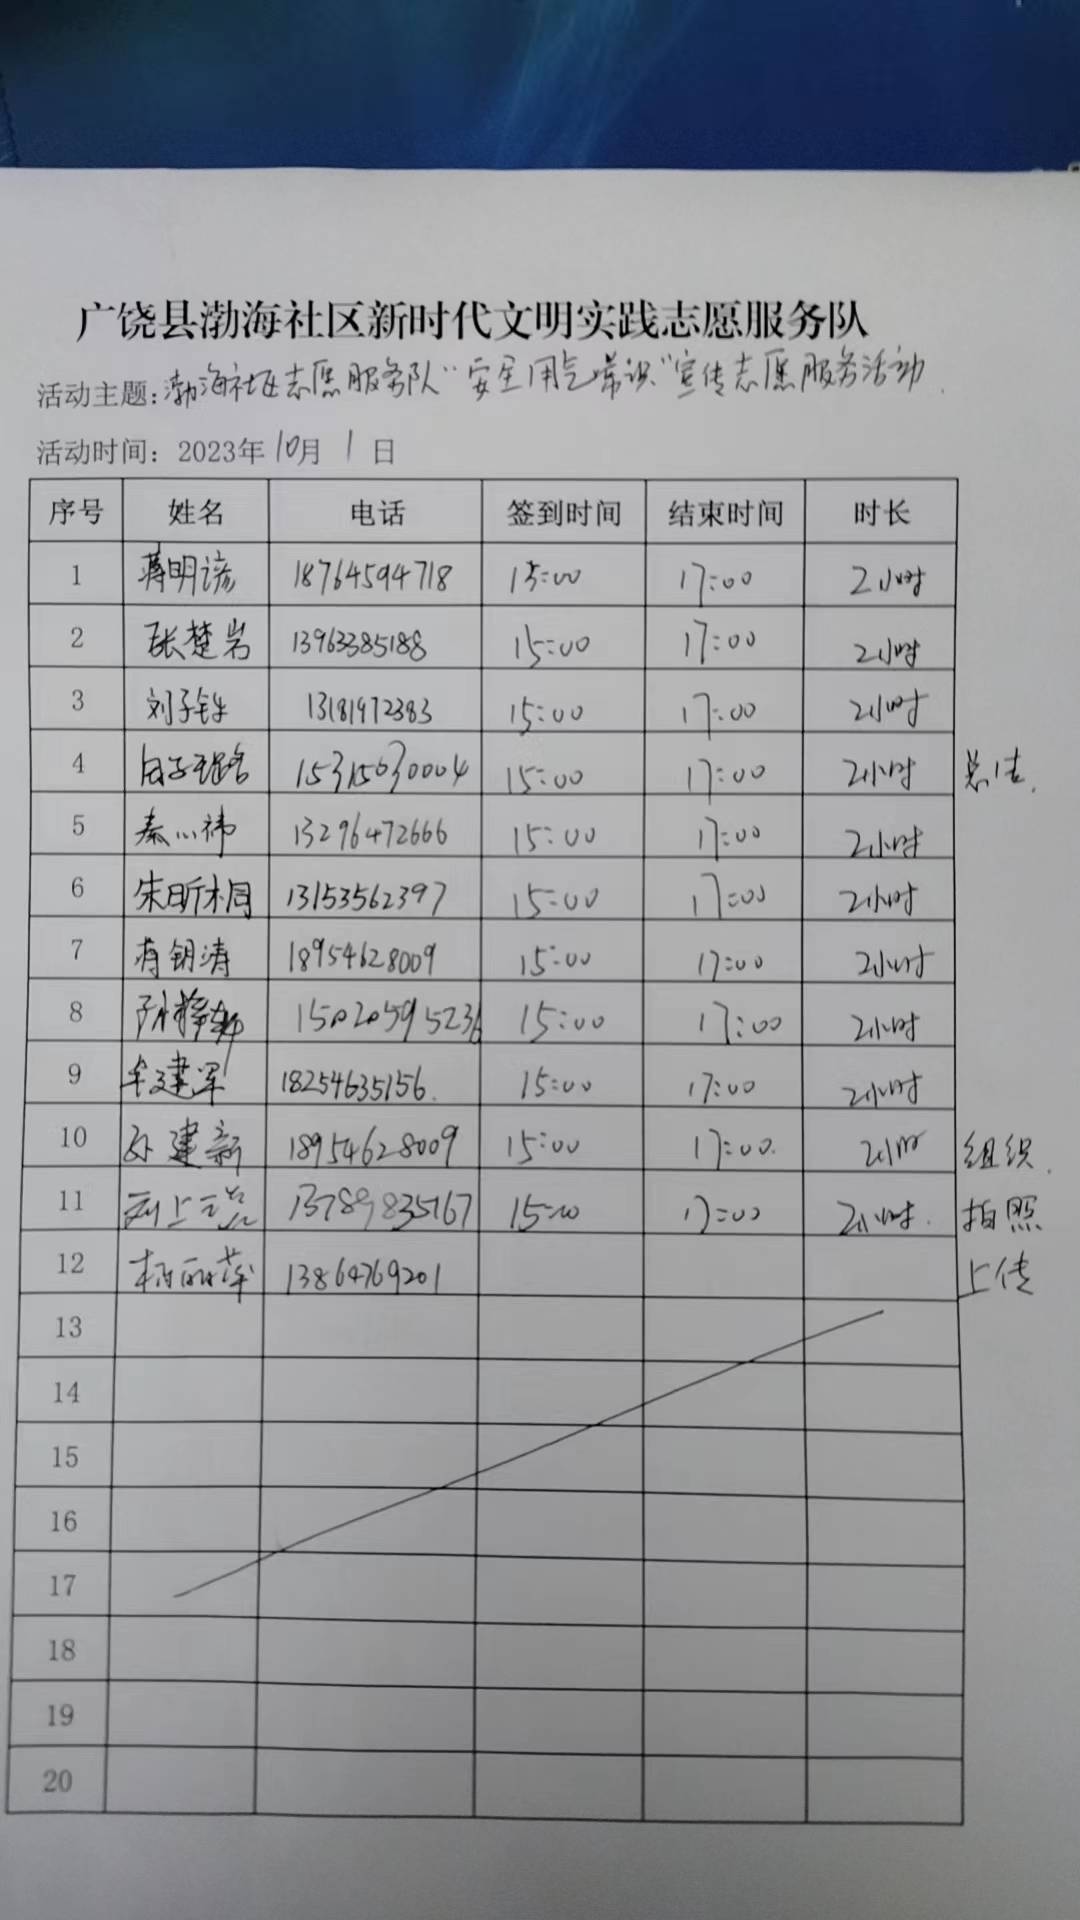 广饶县渤海社区新时代文明实践志愿服务队
活动主题:渤海社区志愿服务队“安全用气常识”宣传志愿服务活动.
活动时间：2023年10月1日
序号 姓名 电话 签到时间 结束时间 时长
1 蒋明谚 18764594718 15:00 17:00 2小时
2 张楚岩 13963385188 15:00 17:00 2小时
3 刘子钰 13181972383 15:00 17:00 2小时
4 15315630004 15:00 17:00 2小时 总结.
5 秦小祎 13296472666 15:00 17:00 2小时
6 朱昕桐 13153562397 15:00 17:00 2小时
7 蒋钥涛 18954628009 15:00 17:00 2小时
8 15020595236 15:00 17:00 2小时
9 牟建军 18254635156. 15:00 17:00 2小时
10 孙建新 18954628009 15:00 17:00. 2小时 组织.
11 13789835167 15:00 17:00 2小时. 拍照
12 13864769201 上传
13
14
15
16
17
18
19
20